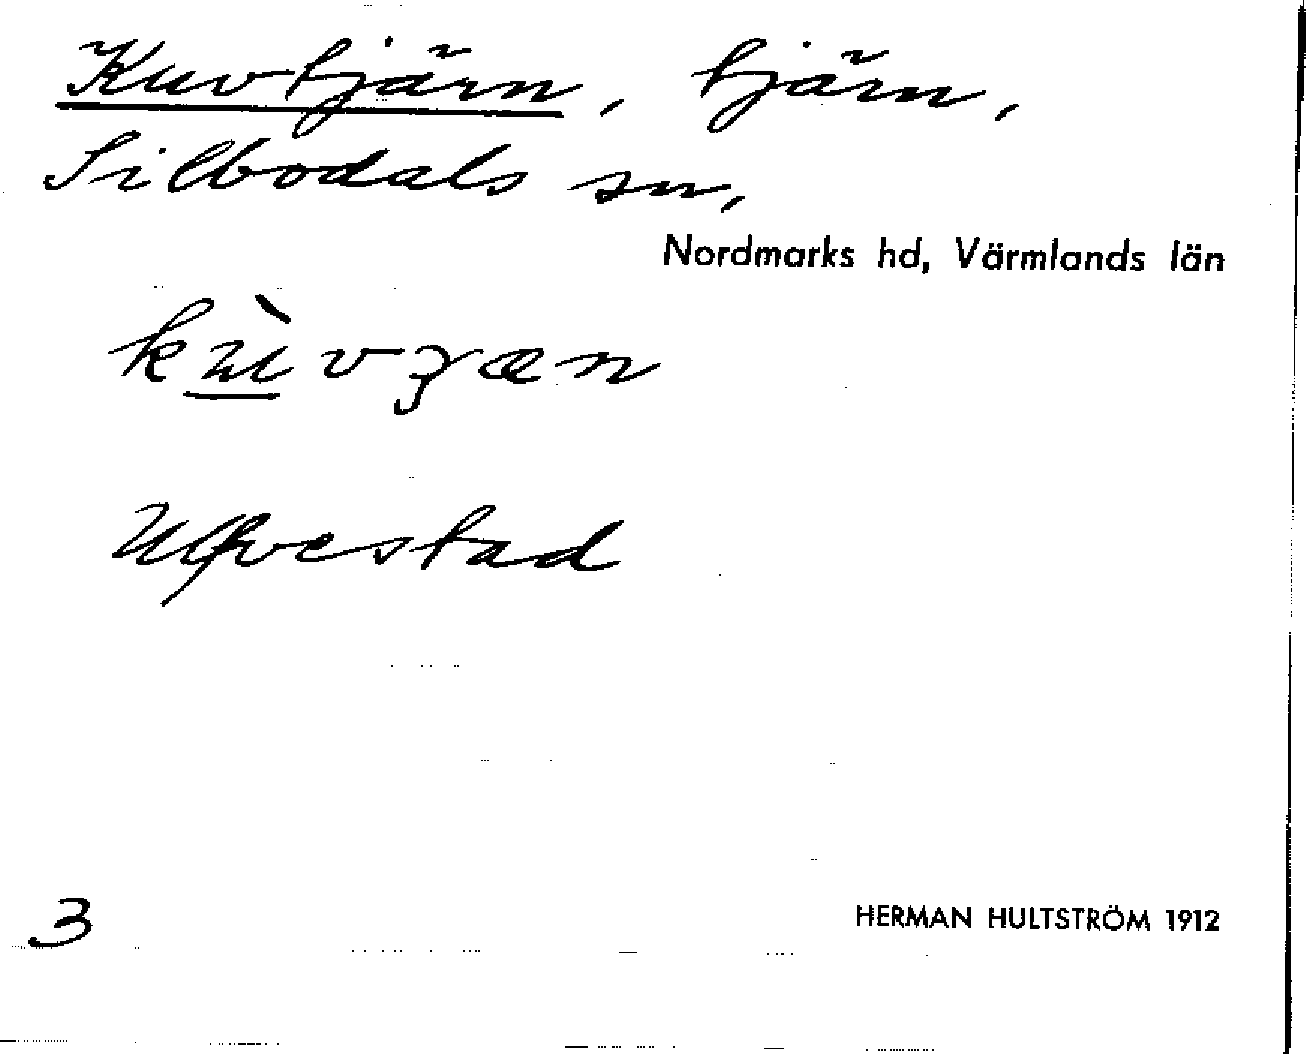 Kuvtjärn, tjärn,
Silbodals sn,
Nordmarks hd, Värmlands län
kùvʒæn
Ulfvestad
3
HERMAN HULTSTRÖM 1912